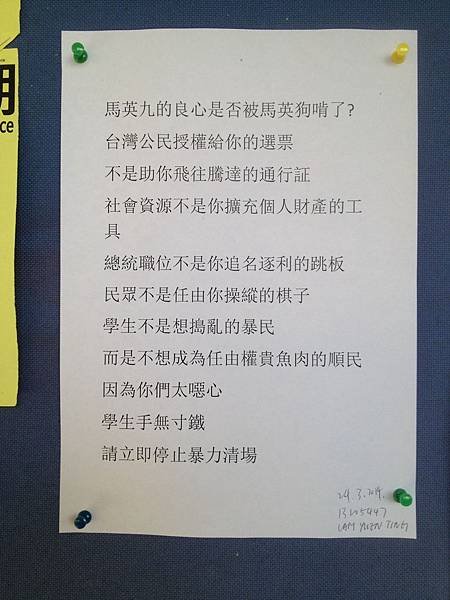 期
ce
馬英九的良心是否被馬英狗啃了?
台灣公民授權給你的選票
不是助你飛往騰達的通行証
社會資源不是你擴充個人財產的工
具
總統職位不是你追名逐利的跳板
民眾不是任由你操縱的棋子
學生不是想搗亂的暴民
而是不想成為任由權貴魚肉的順民
因為你們太噁心
學生手無寸鐵
請立即停止暴力清場
24.3.2014.
13205447
LAM YUEN TING